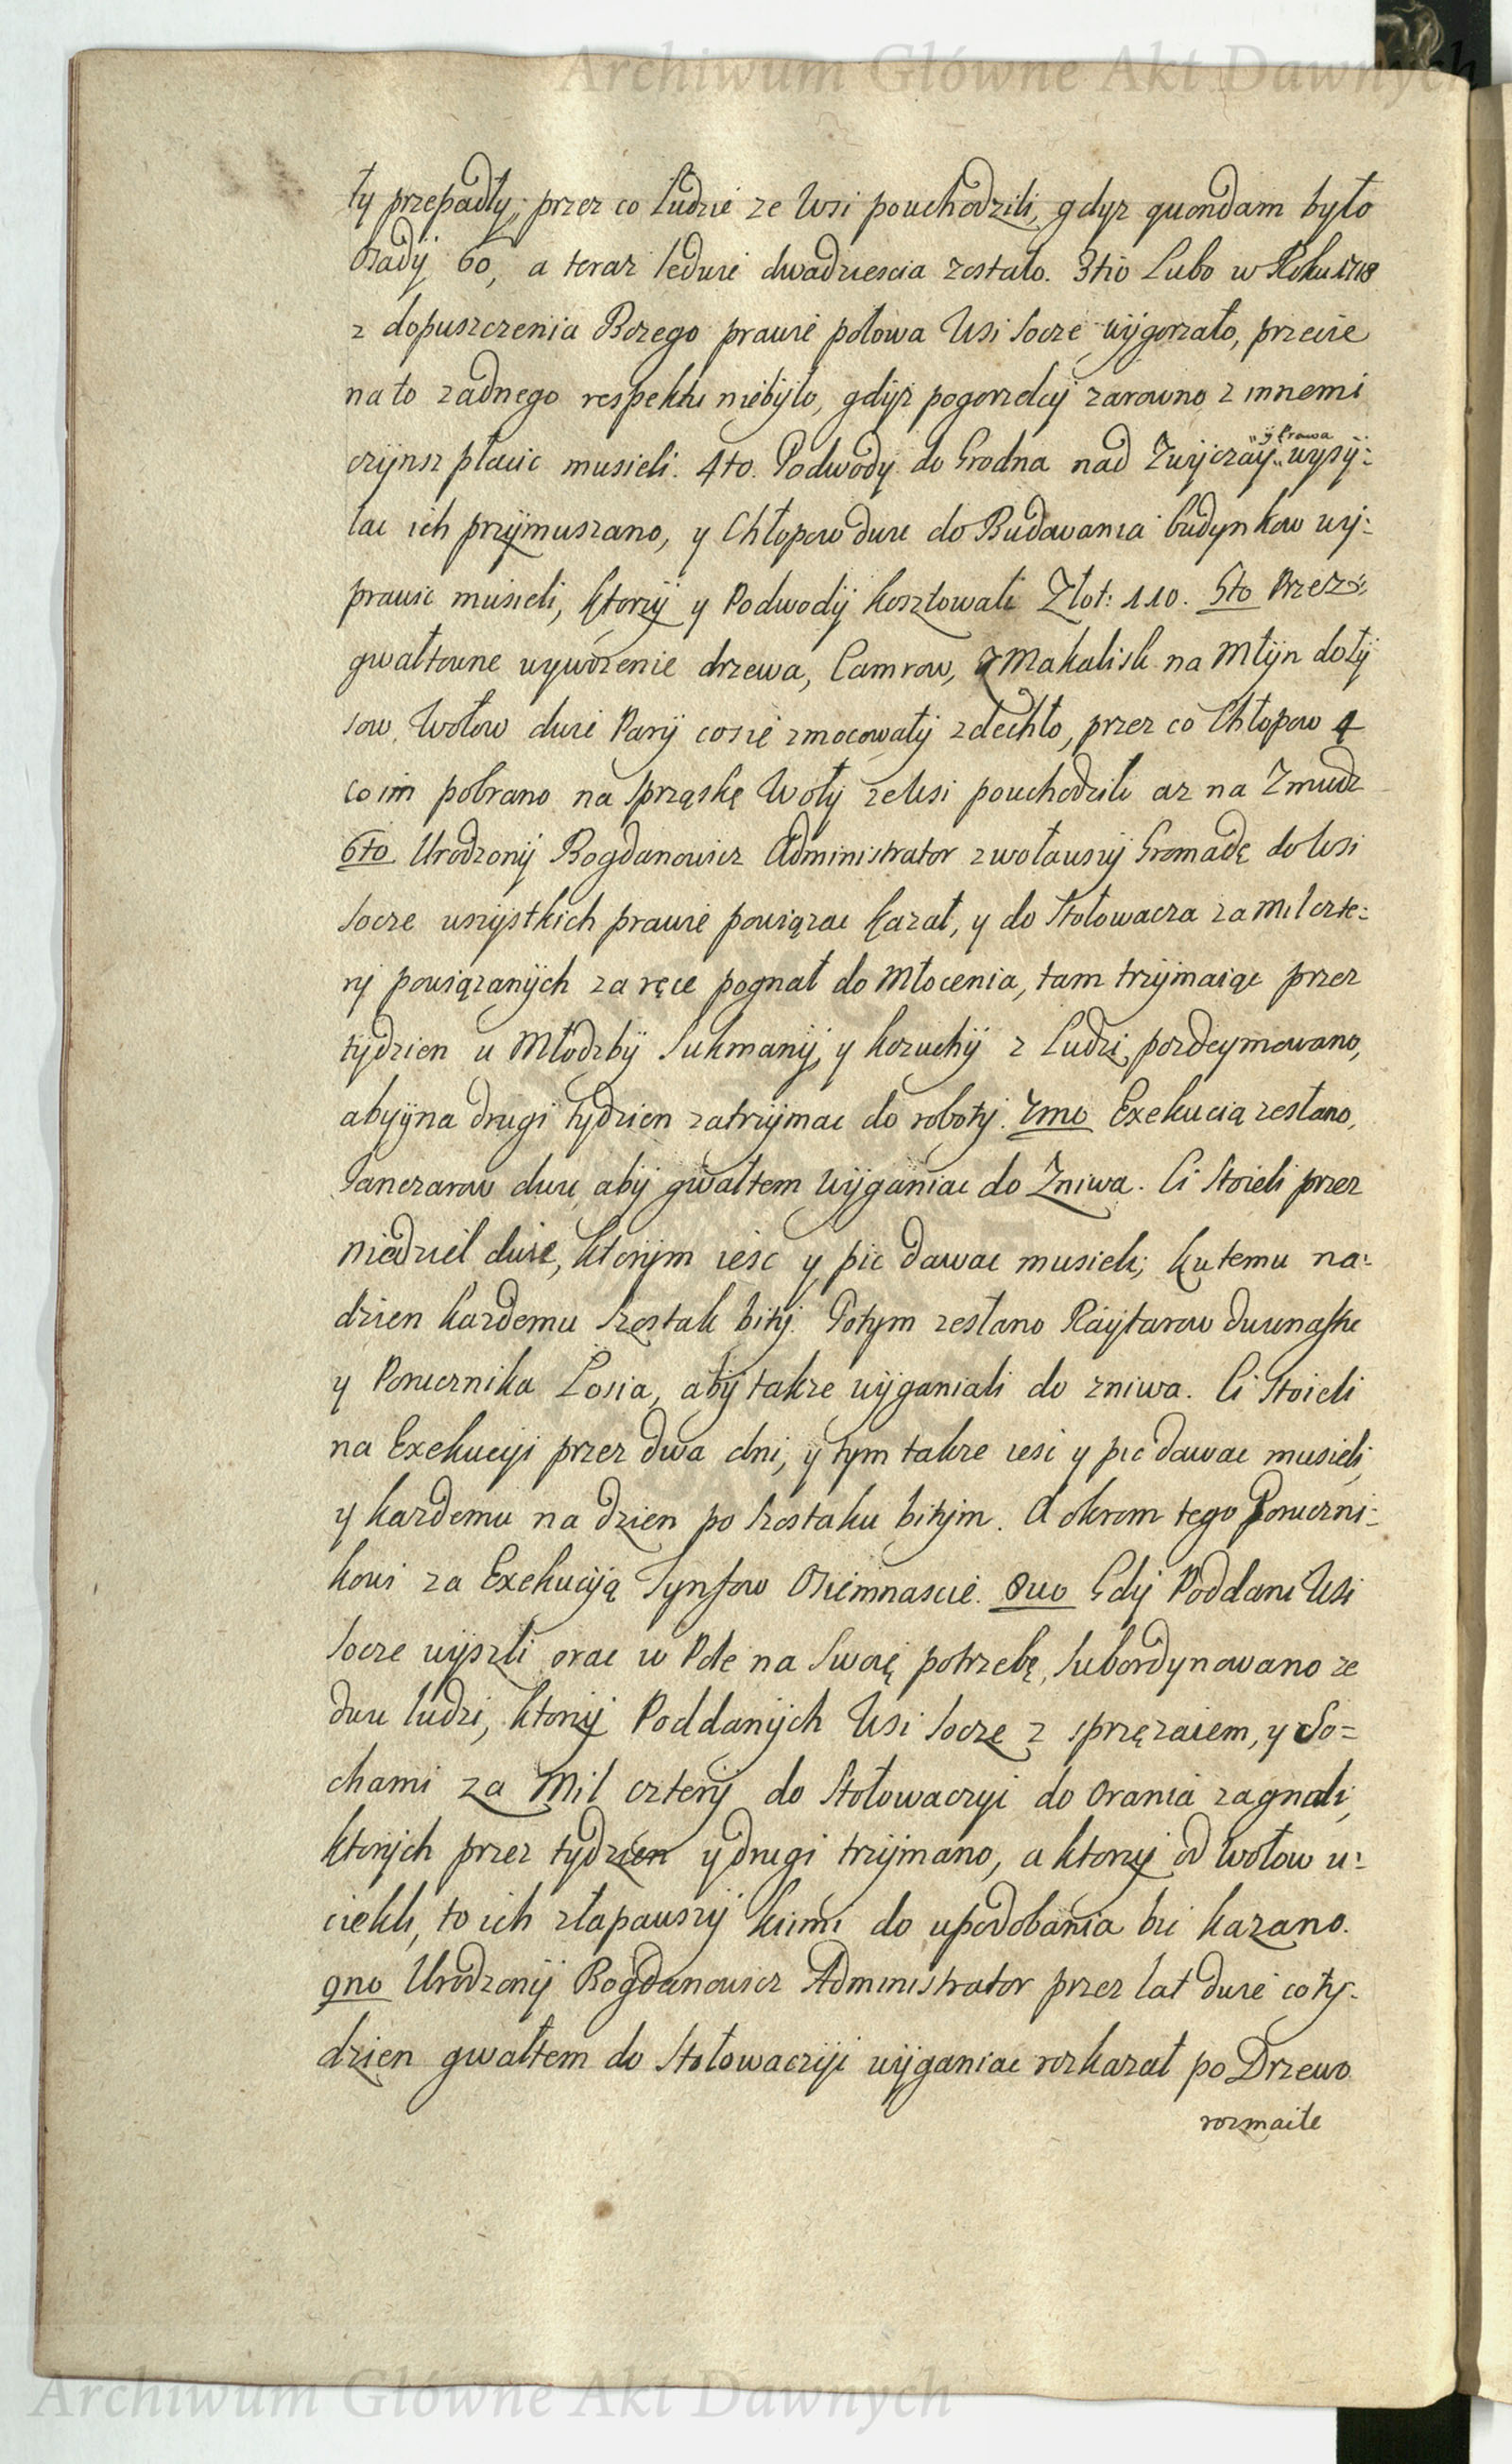 Archiwum Główne Akt Dawnych
ły przepadły, przez co Ludzie ze Wsi pouchodzili, gdyz quondam było
Osady 60, a teraz ledwie dwadziescia zostało. 3tio Lubo w Roku 1718
z dopuszczenia Bozego prawie połowa Wsi Socze wygorzało, przecie
na to zadnego respektu niebyło, gdyz pogorzelcy zarowno z innemi
czynsz płacic musieli. 4to. Podwody do Grodna nad Zwyczay „y Prawa„ wysy:
łac ich przymuszano, y Chłopow dwu do Budowania budynkow wy:
prawic musieli, ktorzy y Podwody kosztowali Złot: 110. 5to Przez
gwałtowne wywozenie drzewa, Camrow, z Makalisk na Młyn doły
sow, Wołow dwie Pary co sie zmocowały zdechło, przez co Chłopow 4
co im pobrano na sprząskę Woły ze Wsi pouchodzili az na Zmudz
6to Urodzony Bogdanowicz Administrator zwoławszy Gromadę do Wsi
Socze wszystkich prawie powiązac kazał, y do Stołowacza za mil czte:
ry powiązanych za ręce pognał do Młocenia, tam trzymaiąc przez
tydzien u Młodzby Sukmany, y kozuchy z Ludzi pozdeymowano,
aby yna drugi tydzien zatrzymac do roboty. 7mo Exekucią zesłano,
Panczarow dwu, aby gwałtem wyganiac do Zniwa. Ci Stoieli przez
niedziel dwie, ktorym iesc y pic dawac musieli, ku temu na:
dzien kazdemu Szostak bity. Potym zesłano Raytarow dwunastu
y Porucznika Łosia, aby takze wyganiali do zniwa. Ci Stoieli
na Exekucyi przez dwa dni, y tym takze iesc y pic dawac musieli,
y kazdemu na dzien po Szostaku bitym. A okrom tego Poruczni:
kowi za Exekucyją Tynfow Osiemnascie. 8vo Gdy Poddani Wsi
Socze wyszli orac w Pole na Swoię potrzebę, Subordynowano ze
dwu ludzi, ktorzy Poddanych Wsi Socze z sprzęzaiem, y So=
chami za Mil cztery do Stołowaczyi do Orania zagnali,
ktorych przez tydzien y drugi trzymano, a ktorzy od Wołow u:
ciekli, to ich złapawszy kiimi do upodobania bic kazano.
9no Urodzony Bogdanowicz Administrator przez lat dwie co ty:
dzien gwałtem do Stołowaczyi wyganiac rozkazał po Drzewo
rozmaite
Archiwum Główne Akt Dawnych